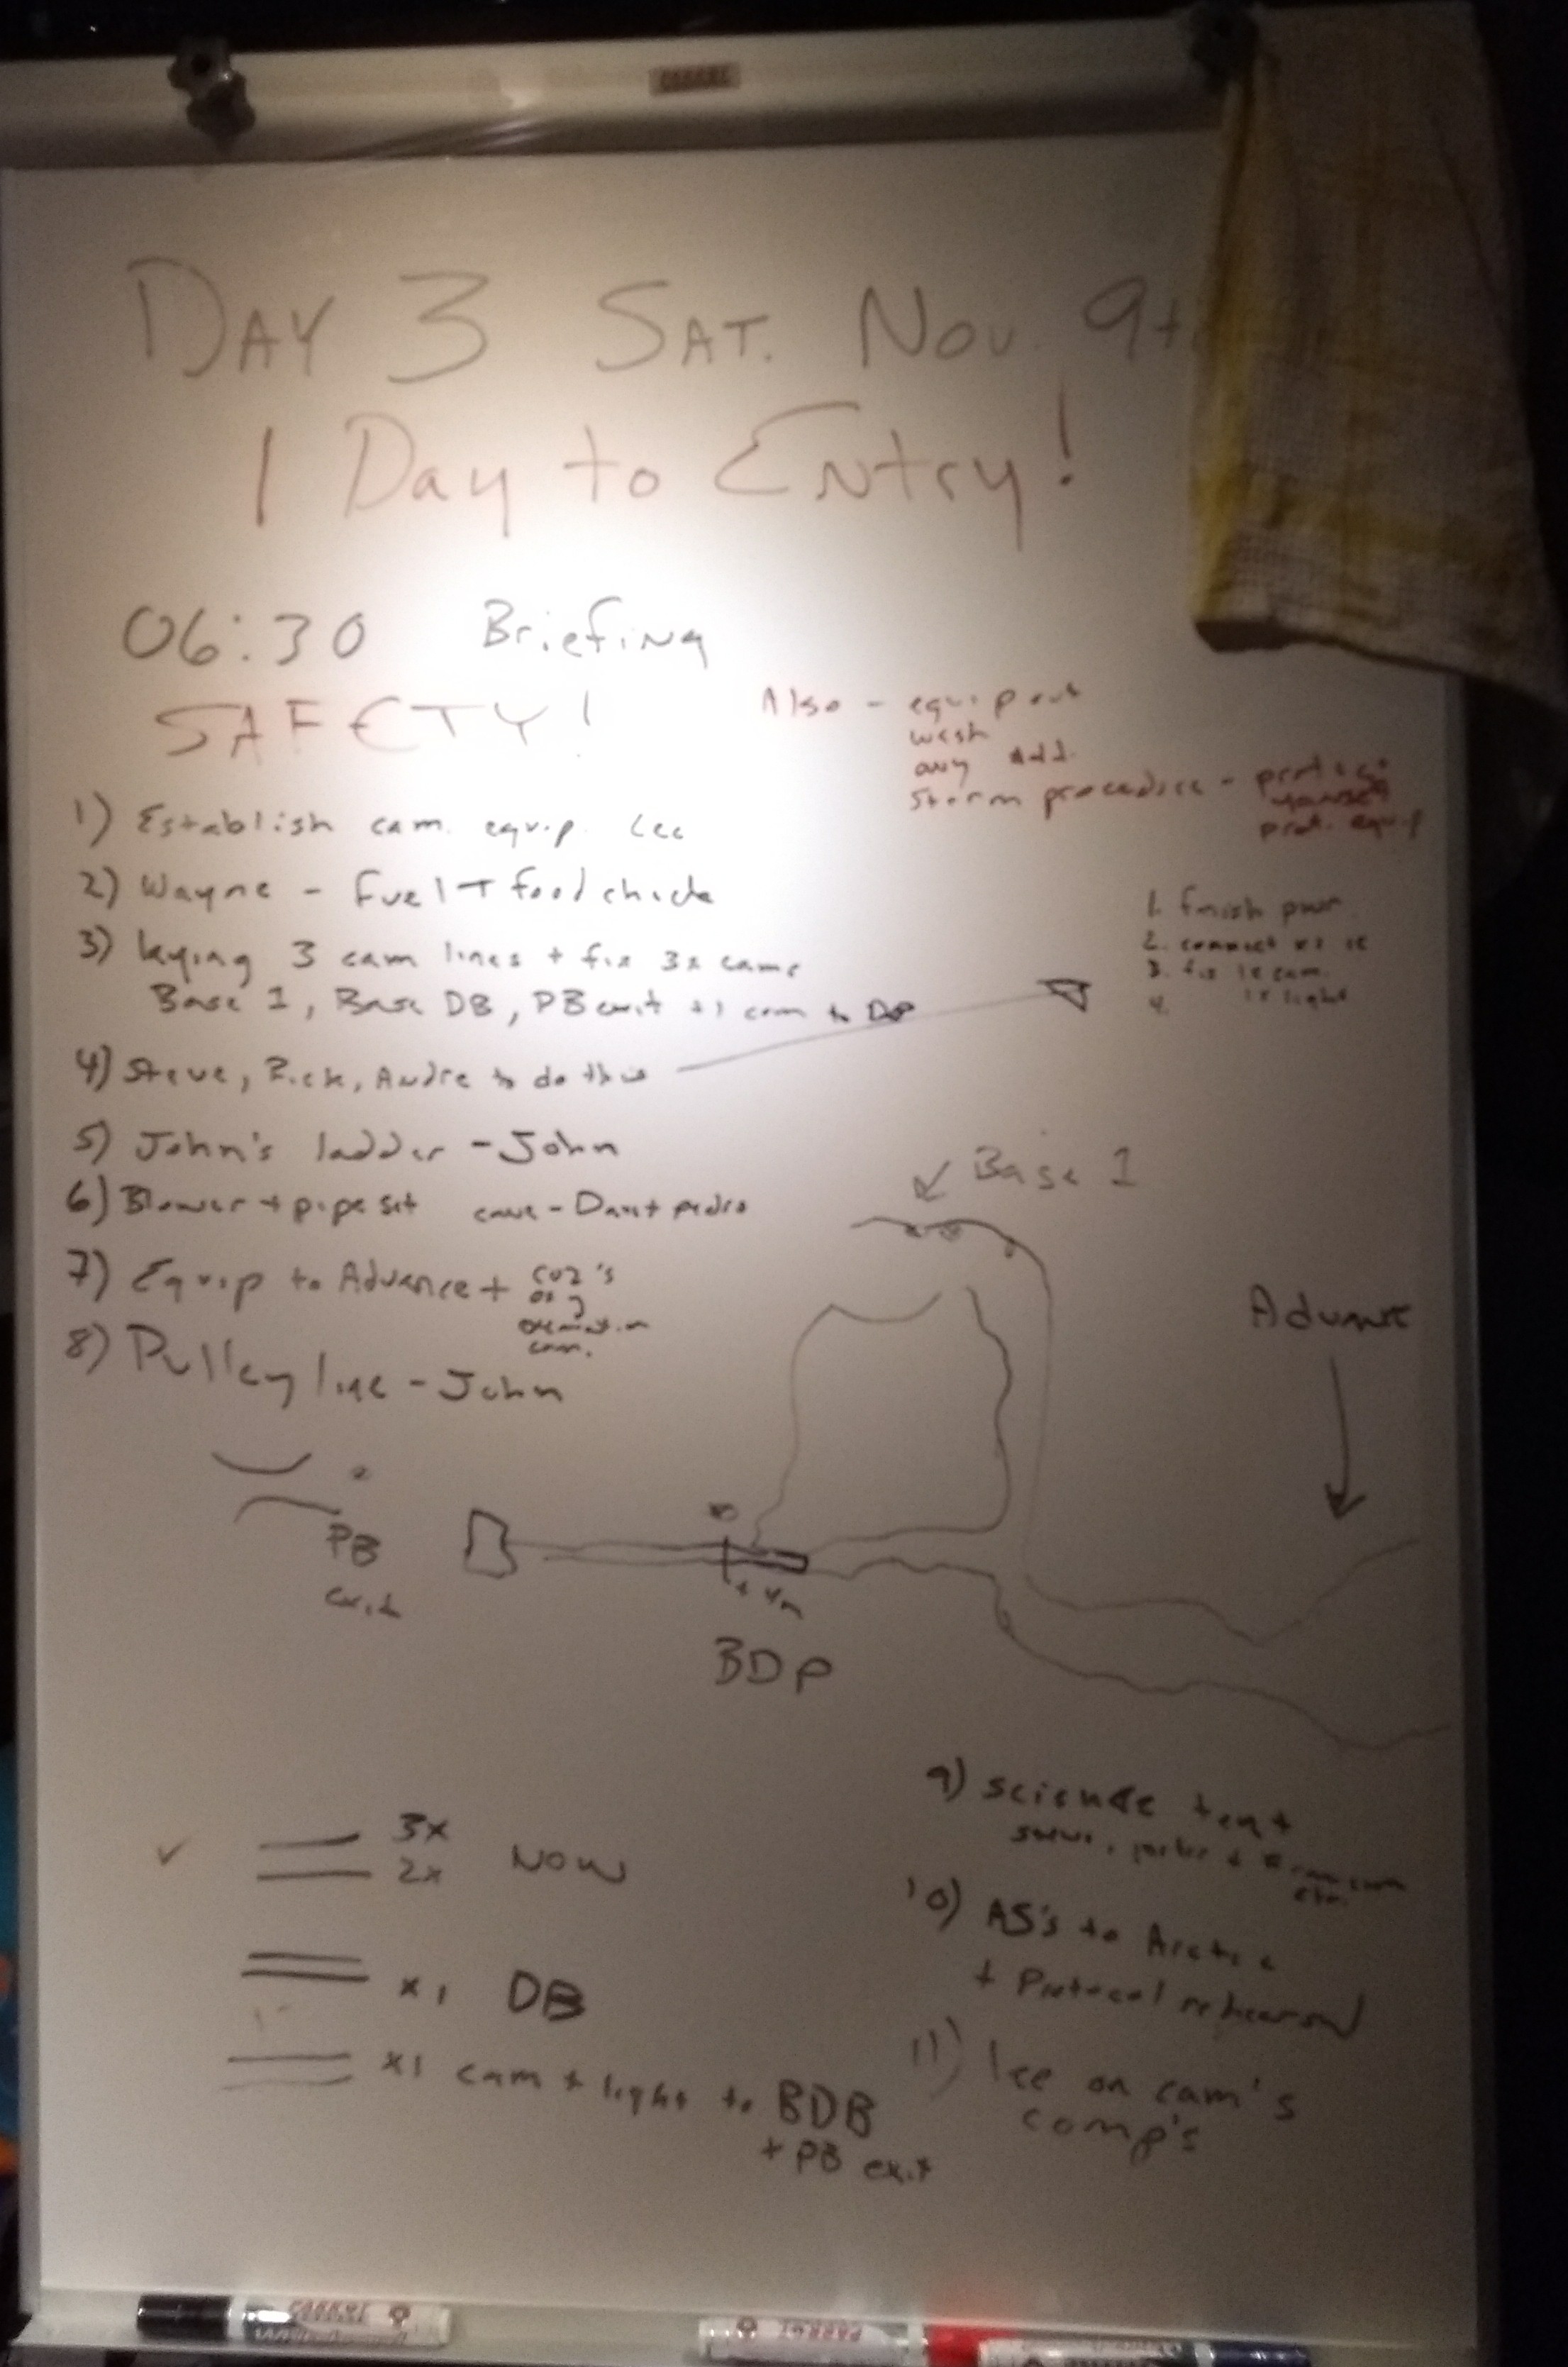 DAY 3 SAT. NOV. 9t
1 Day to Entry!
06:30 Briefing
SAFETY!
Also - equip out
wash
any add.
Storm procedure - protect
yourself
prot. equip
1) Establish cam. equip. Lee
2) Wayne - Fuel + food check
3) laying 3 cam lines + fix 3x cams
Base 1, Base DB, PB exit +1 cam to
4) Steve, Rick, Andre to do this
1. finish pwr
2. connect
3. fix 1x cam
1x light
4.
5) John's ladder - John
6) Blower + pipe set cave - Dan + pedro
7) Equip to Advance + CO2's
cam.
8) Pulley line - John
Base 1
Advance
PB
exit
4m
BDP
3x
2x NOW
x1 DB
x1 cam + light to BDB
+ PB exit
9) science tent
10) AS's to Arctic
+ Protocol rehearsal
11) Lee on cam's
comp's
PARROT
PARROT